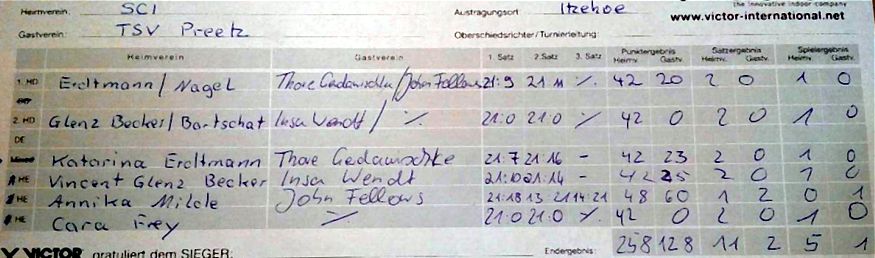 Heimverein: SCI Austragungsort Itzehoe the innovative indoor company
www.victor-international.net
Gastverein: TSV Preetz Oberschiedsrichter/Turnierleitung:
Heimverein Gastverein 1. Satz 2. Satz 3. Satz Punktergebnis Heimv. Gastv. Satzergebnis Heimv. Gastv. Spielergebnis Heimv. Gastv.
1. HD Erdtmann/Nagel Thore Gedawschke/John Fellows 21:9 21:11 ٪ 42 20 2 0 1 0
2. HD Glenz Becker/Bartschat Insa Wendt/٪ 21:0 21:0 ٪ 42 0 2 0 1 0
DE
Katarina Erdtmann Thore Gedawschke 21:7 21:16 - 42 23 2 0 1 0
HE Vincent Glenz Becker Insa Wendt 21:14 - 42 25 2 0 1 0
HE Annika Milde John Fellows 21:18 13:21 14:21 48 60 1 2 0 1
HE Cara Frey ٪ 21:0 21:0 ٪ 42 0 2 0 1 0
VICTOR gratuliert dem SIEGER: Endergebnis: 258 128 11 2 5 1